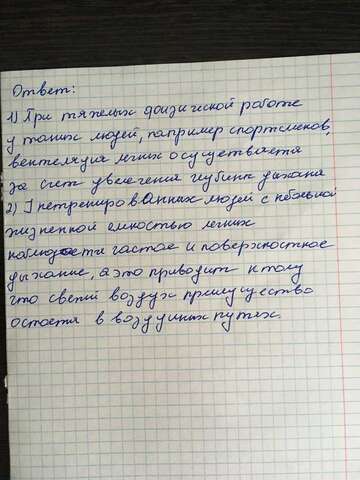 Ответ:
1) При тяжелых физической работе
у таких людей, например спортсменов,
вентеляция легких осуществляется
за счет увелечения глубины дыхания
2) У нетренированных людей с небольшой
жизненной емкостью легких
наблюдается частое и поверхностное
дыхание, а это приводит к тому
что свежий воздух приемущество
остается в воздушных путях.